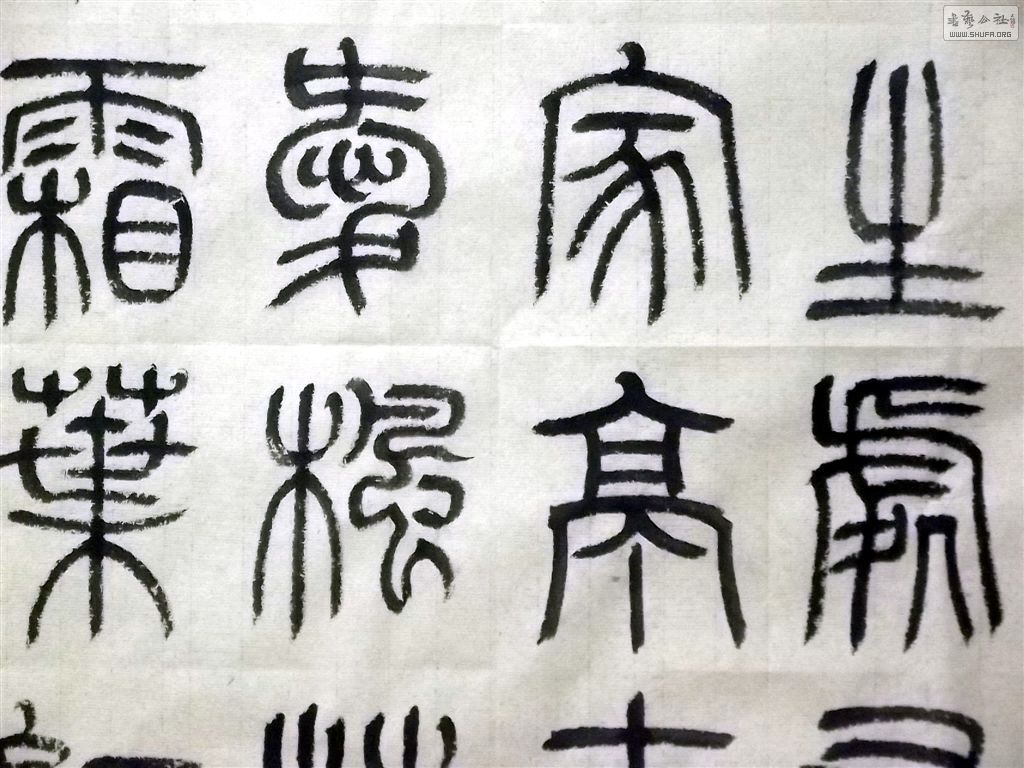 生處
家亭
愛楓
霜葉
書藝公社
WWW.SHUFA.ORG